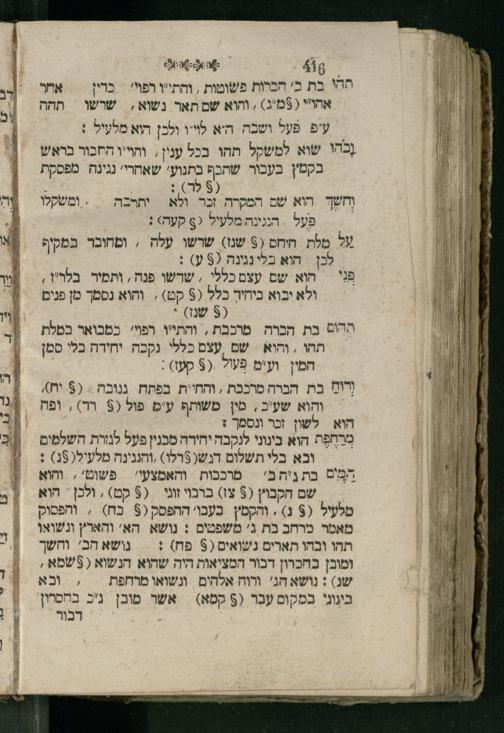 416
תהו בת ב' הברות פשוטות, והתי"ו רפוי' כדין אחר
אהו"י (§מ"ג), והוא שם תאר נשוא, שרשו תהה
ע"פ פעל ושבה ה"א לוי"ו ולכן הוא מלעיל :
ובהו שוא למשקל תהו בכל ענין, והוי"ו החבור בראש
בקמץ בעבור שתכף בתנוע' שאחרי' נגינה מפסקת
(§ לד) :
וחשך הוא שם המקרה זכר ולא יתרבה ומשקלו
פעל הנגינה מלעיל (§ קעה) :
על מלת היחס (§ שנז) שרשו עלה , ומחובר במקיף
לכן הוא בלי נגינה (§ ע) :
פני הוא שם עצם כללי , שרשו פנה, ותמיד בלר"ז,
ולא יבוא ביחיד כלל (§ קט), והוא נסמך מן פנים
(§ שנז)
תהום בת הברה מרכבת, והתי"ו רפוי' כמבואר במלת
תהו, והוא שם עצם כללי נקבה יחידה בלי סמן
המין וע"מ פעול (§ קעז) :
ורוח בת הברה מרכבת, והחי"ת בפתח גנובה (§ יח),
והוא שע"כ, מין משותף ע"מ פול (§ רד), ופה
הוא לשון זכר ונסמך :
מרחפת הוא בינוני לנקבה יחידה מבנין פעל לגזרת השלמים
ובא בלי תשלום דגש(§רלו), והנגינה מלעיל(§נ) :
המים בת נ"ה ב' מרכבות והאמצעי' פשוט', והוא
שם הקבוץ (§ צז) ברבוי זוגי (§ קט), ולכן הוא
מלעיל (§ נ), והקמץ בעבו' ההפסק (§ כח) , והפסוק
מאמר מרחב בת ג' משפטים : נושא הא' והארץ ונשואו
תהו ובהו תארים נשואים (§ פח) : נושא הב' וחשך
ומובן בחכרון דבור המציאות היה שהוא הנשוא (§שמא,
שנ) : נושא הג' ורוח אלהים ונשואו מרחפת , ובא
בינוני במקום עבר (§ קמא) אשר מובן ג"כ בחסרון
דבור